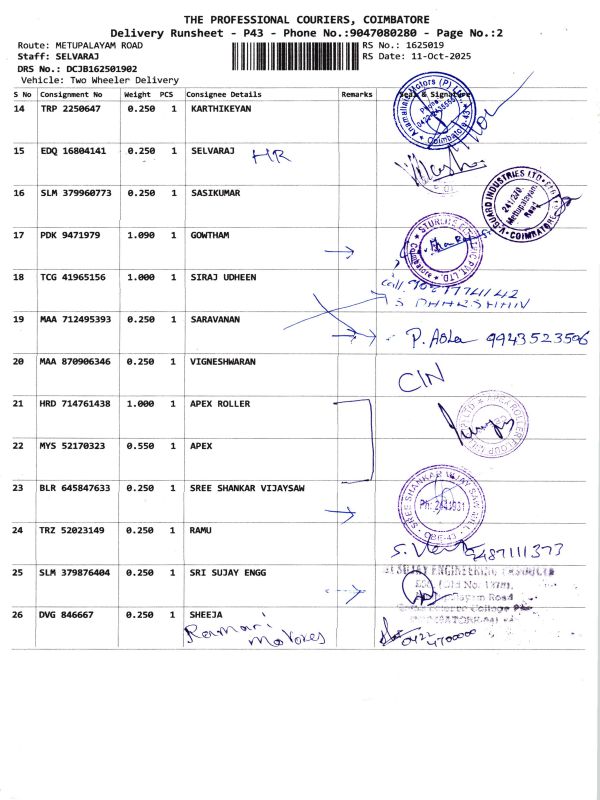 THE PROFESSIONAL COURIERS, COIMBATORE
Delivery Runsheet - P43 - Phone No.:9047080280 - Page No.:2
Route: METUPALAYAM ROAD RS No.: 1625019
Staff: SELVARAJ RS Date: 11-Oct-2025
DRS No.: DCJB162501902
Vehicle: Two Wheeler Delivery
S No Consignment No Weight PCS Consignee Details Remarks Seal & Signature
14 TRP 2250647 0.250 1 KARTHIKEYAN
15 EDQ 16804141 0.250 1 SELVARAJ HR
16 SLM 379960773 0.250 1 SASIKUMAR
17 PDK 9471979 1.090 1 GOWTHAM
18 TCG 41965156 1.000 1 SIRAJ UDHEEN
19 MAA 712495393 0.250 1 SARAVANAN P. Asha 9943523506
20 MAA 870906346 0.250 1 VIGNESHWARAN CIN
21 HRD 714761438 1.000 1 APEX ROLLER
22 MYS 52170323 0.550 1 APEX
23 BLR 645847633 0.250 1 SREE SHANKAR VIJAYSAW
24 TRZ 52023149 0.250 1 RAMU 9487111373
25 SLM 379876404 0.250 1 SRI SUJAY ENGG
26 DVG 846667 0.250 1 SHEEJA 0422
Ramani Motores 4700000